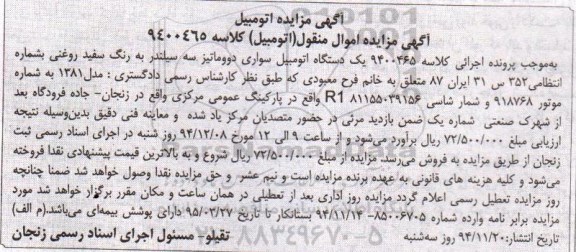 آگهی مزایده اتومبیل
آگهی مزایده اموال منقول(اتومبیل) کلاسه ۹۴۰۰۴۶۵
به‌موجب پرونده اجرائی کلاسه ۹۴۰۰۴۶۵ یک دستگاه اتومبیل سواری دووماتیز سه سیلندر به رنگ سفید روغنی بشماره
انتظامی۳۵۲ س ۳۱ ایران ۸۷ متعلق به خانم فرح معبودی که طبق نظر کارشناس رسمی دادگستری : مدل۱۳۸۱ به شماره
موتور ۹۱۸۷۶۸ و شمار شاسی R1 ۸۱۱۵۵۰۳۹۱۵۶ واقع در پارکینگ عمومی مرکزی واقع در زنجان- جاده فرودگاه بعد
از شهرک صنعتی شماره یک ضمن بازدید مرئی در حضور متصدیان مرکز یاد شده و معاینه فنی دقیق بدین‌وسیله نتیجه
ارزیابی مبلغ ۷۲/۵۰۰/۰۰۰ ریال برآورد می‌شود،و از ساعت ۹ الی ۱۲ مورخ ۹۴/۱۲/۰۸ روز شنبه در اجرای اسناد رسمی ثبت
زنجان از طریق مزایده به فروش می‌رسد. مزایده از مبلغ ۷۲/۵۰۰/۰۰۰ ریال شروع و به بالاترین قیمت پیشنهادی نقدا فروخته
می‌شود و کلیه هزینه های قانونی به عهده برنده مزایده است و نیم عشر و حق مزایده نقدا وصول خواهد شد ضمنا چنانچه
روز مزایده تعطیل رسمی اعلام گردد مزایده روز اداری بعد از تعطیلی در همان ساعت و مکان مقرر برگزار خواهد شد مورد
مزایده برابر نامه وارده شماره ۸۵۰۰۶۷۰۵- ۹۴/۱۱/۱۴ بستانکار تا تاریخ ۹۵/۰۲/۲۷ دارای پوشش بیمه‌ای می‌باشد.(م الف)
تاریخ انتشار:۹۴/۱۱/۲۰ روز سه‌شنبه تقیلو- مسئول اجرای اسناد رسمی زنجان
ParsNamadData
۰۲۱-۸۸۳۴۹۶۷۰-۵